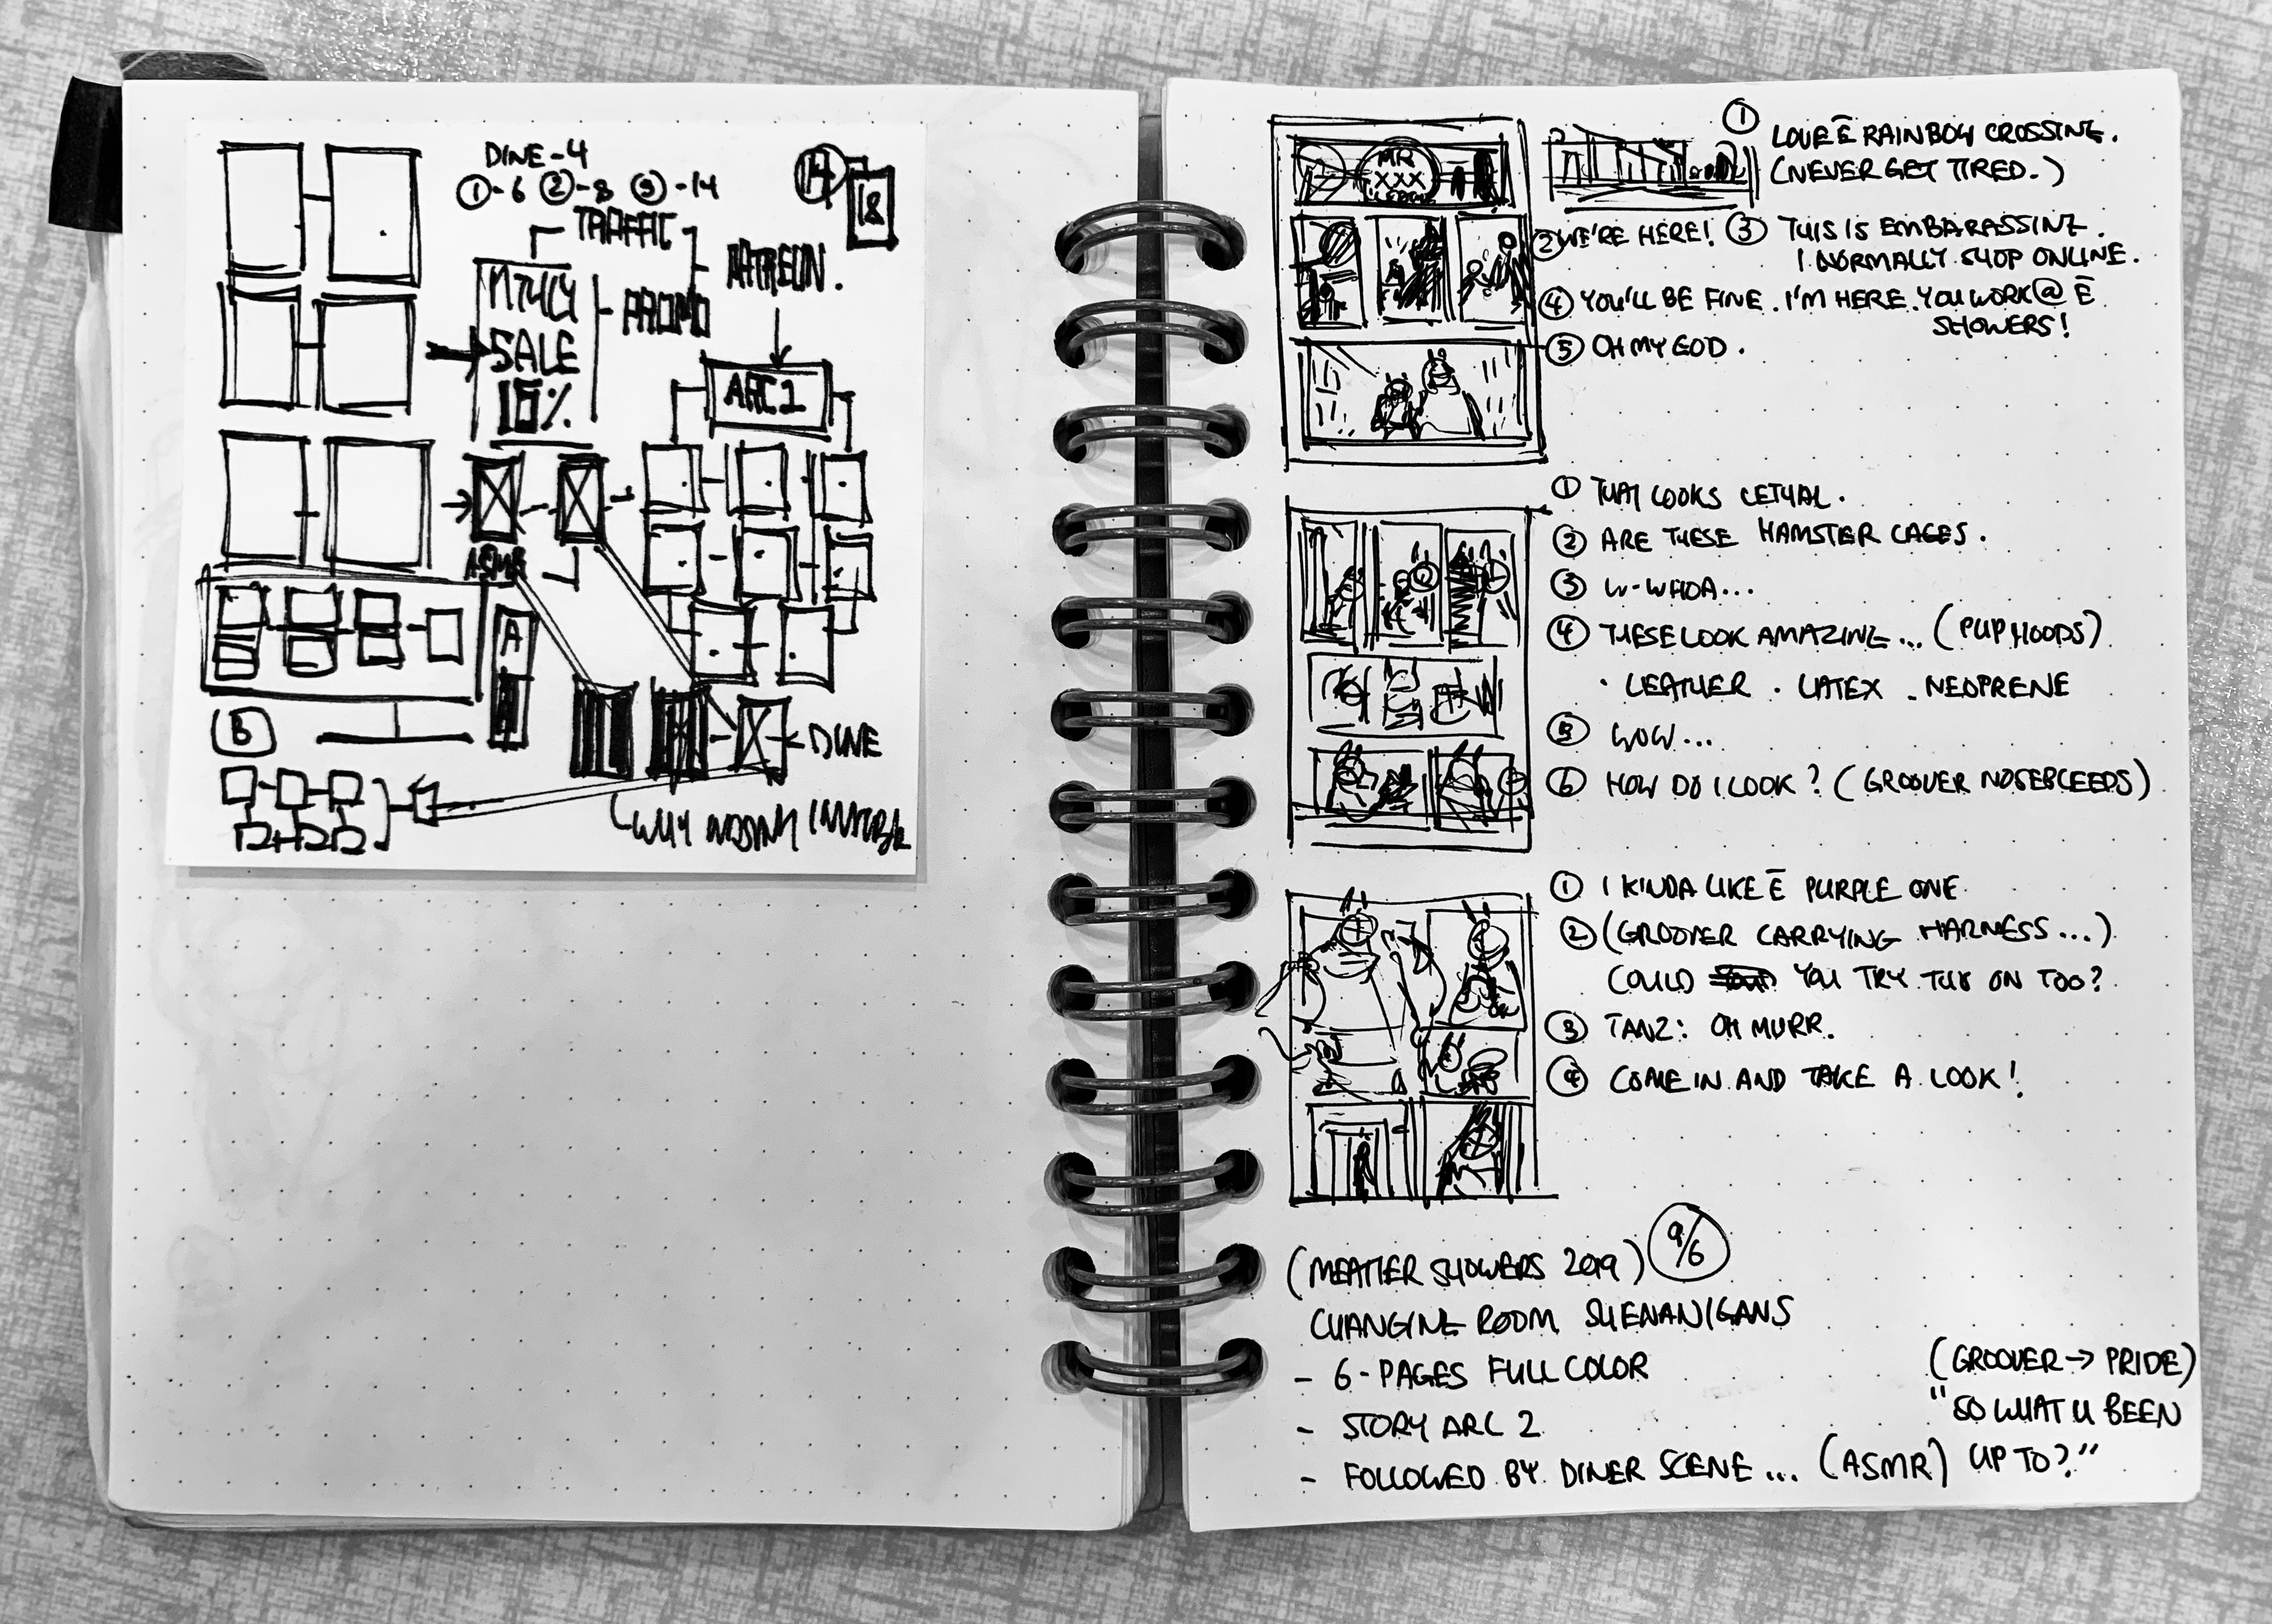 DINE-4
①-6 ②-8 ③-14
14
18
TRAFFIC
PATREON.
MTHLY
SALE
PROMO
ARC 1
ASMR
A
B
DINE
WHY NOSING
MR
XXX
① LOVE Ē RAINBOW CROSSING.
(NEVER GET TIRED.)
② WE'RE HERE! ③ THIS IS EMBARASSING.
I NORMALLY SHOP ONLINE.
④ YOU'LL BE FINE. I'M HERE. YOU WORK @ Ē
SHOWERS!
⑤ OH MY GOD.
① THAT LOOKS LETHAL.
② ARE THESE HAMSTER CAGES.
③ W-WHOA...
④ THESE LOOK AMAZING... (PUP HOODS)
· LEATHER · LATEX . NEOPRENE
⑤ WOW...
⑥ HOW DO I LOOK? (GROOVER NOSEBLEEDS)
① I KINDA LIKE Ē PURPLE ONE
② (GROOVER CARRYING HARNESS...)
COULD YOU TRY THIS ON TOO?
③ TANZ: OH MURR.
④ COME IN AND TAKE A LOOK!
(MEATIER SHOWERS 2019) 9/6
CHANGING ROOM SHENANIGANS
- 6-PAGES FULL COLOR
- STORY ARC 2
- FOLLOWED BY DINER SCENE... (ASMR)
(GROOVER → PRIDE)
"SO WHAT U BEEN
UP TO?"